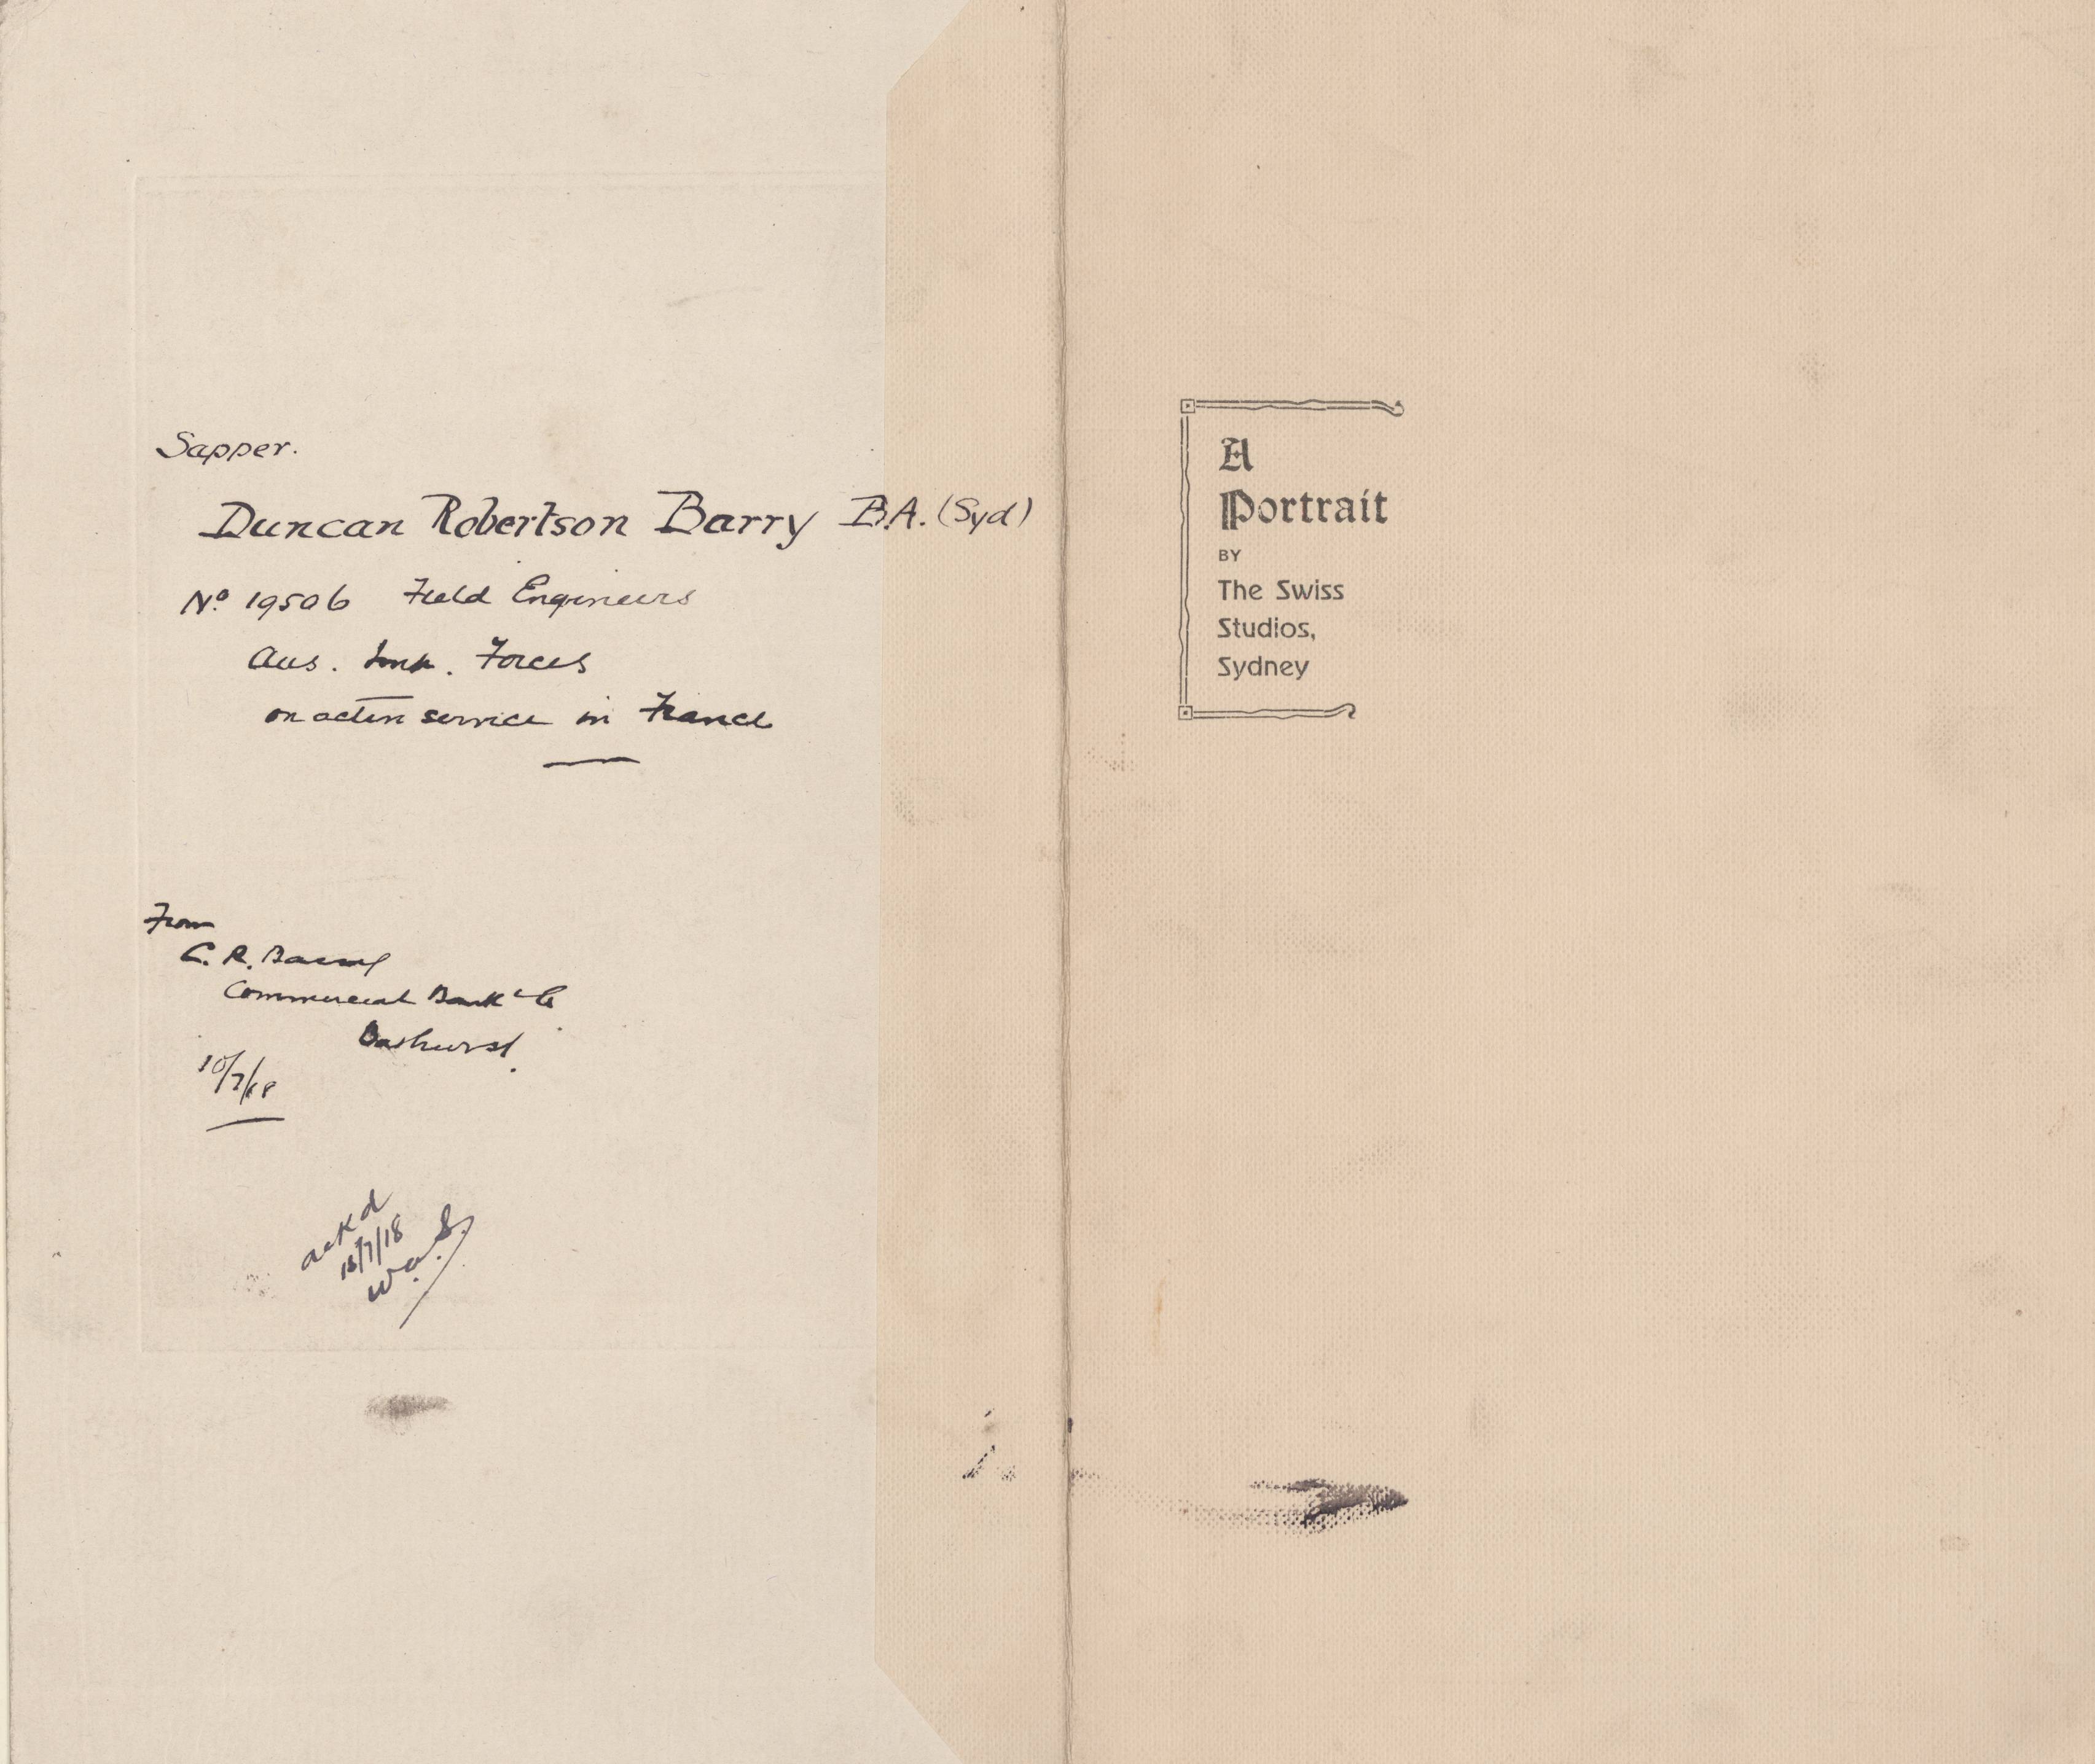 Sapper.
Duncan Robertson Barry B.A. (Syd)
No 19506 Field Engineers
Aus. Imp. Forces
on active service in France
From
C. R. Barry
Commercial Bank
Bathurst.
10/7/18
ackd
15/7/18
W.A.S.
A
Portrait
BY
The Swiss
Studios,
Sydney